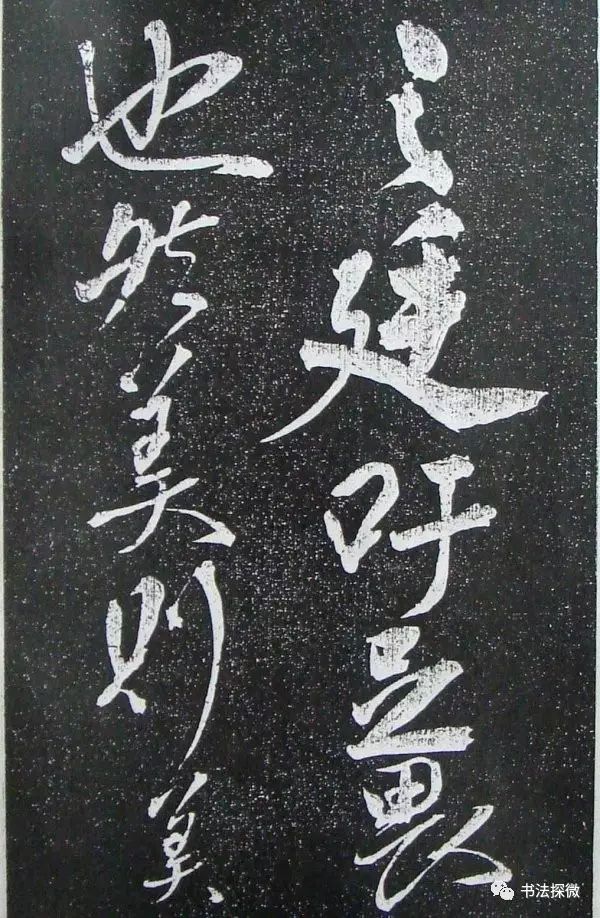 之廷吁足畏
也然美則美
书法探微